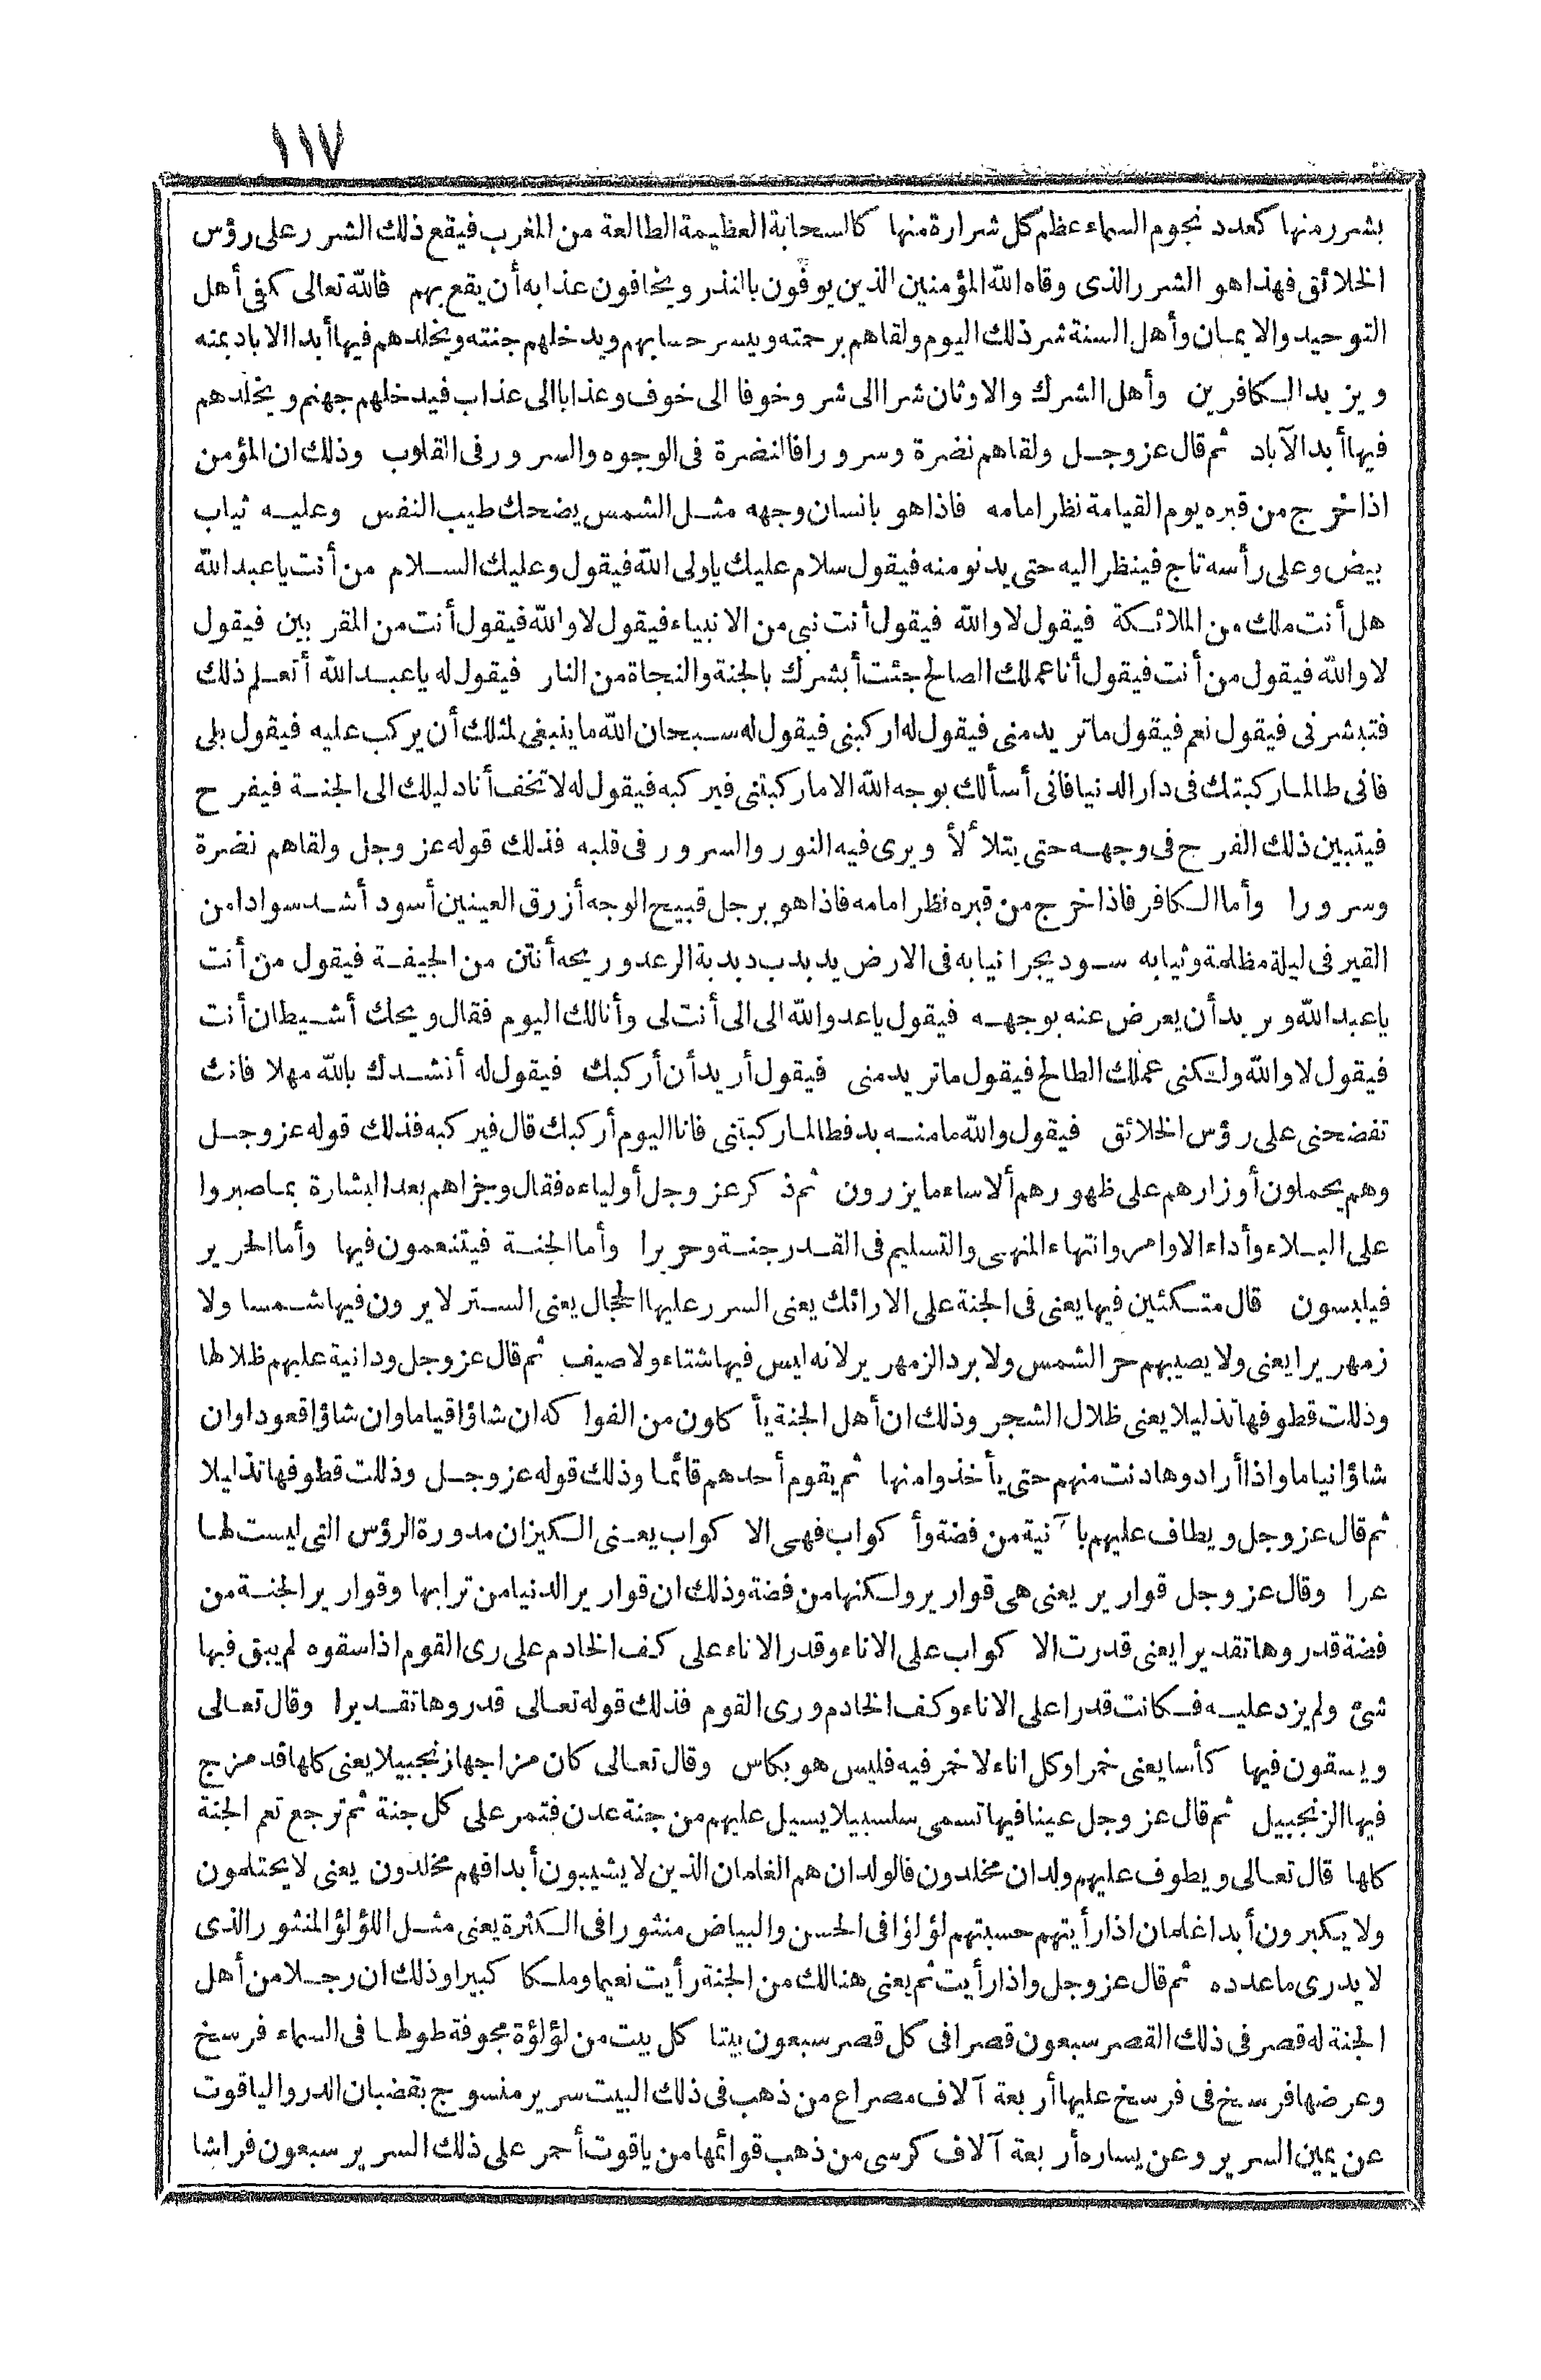 ١١٧
بشرر منها كعدد نجوم السماء عظم كل شرارة منها كالسحابة العظيمة الطالعة من المغرب فيقع ذلك الشرر على رؤس
الخلائق فهذا هو الشرر الذى وقاه الله المؤمنين الذين يوفون بالنذر ويخافون عذابه أن يقع بهم فالله تعالى كفى أهل
التوحيد والايمان وأهل السنة شر ذلك اليوم ولقاهم برحمته ويسر حسابهم ويدخلهم جنته ويخلدهم فيها أبد الاباد بمنه
ويزيد الكافرين وأهل الشرك والاوثان شرا الى شر وخوفا الى خوف وعذابا الى عذاب فيدخلهم جهنم ويخلدهم
فيها أبد الآباد ثم قال عز وجل ولقاهم نضرة وسرورا فالنضرة فى الوجوه والسرور فى القلوب وذلك ان المؤمن
اذا خرج من قبره يوم القيامة نظر امامه فاذا هو بانسان وجهه مثل الشمس يضحك طيب النفس وعليه ثياب
بيض وعلى رأسه تاج فينظر اليه حتى يدنو منه فيقول سلام عليك ياولى الله فيقول وعليك السلام من أنت ياعبد الله
هل أنت ملك من الملائكة فيقول لا والله فيقول أنت نبى من الانبياء فيقول لا والله فيقول أنت من المقربين فيقول
لا والله فيقول من أنت فيقول أنا عملك الصالح جئت أبشرك بالجنة والنجاة من النار فيقول له ياعبد الله أتعلم ذلك
فتبشرنى فيقول نعم فيقول ما تريد منى فيقول له اركبنى فيقول له سبحان الله ما ينبغى لمثلك أن يركب عليه فيقول بلى
فانى طالما ركبتك فى دار الدنيا فانى أسألك بوجه الله الا ما ركبتنى فيركبه فيقول له لا تخف أنا دليلك الى الجنة فيفرح
فيتبين ذلك الفرح فى وجهه حتى يتلألأ ويرى فيه النور والسرور فى قلبه فذلك قوله عز وجل ولقاهم نضرة
وسرورا وأما الكافر فاذا خرج من قبره نظر امامه فاذا هو برجل قبيح الوجه أزرق العينين أسود أشد سوادا من
القير فى ليلة مظلمة وثيابه سود يجر انيابه فى الارض يدبدب دبدبة الرعد وريحه أنتن من الجيفة فيقول من أنت
ياعبد الله ويريد أن يعرض عنه بوجهه فيقول ياعدو الله الى الى أنت لى وأنا لك اليوم فقال ويحك أشيطان أنت
فيقول لا والله ولكنى عملك الطالح فيقول ما تريد منى فيقول أريد أن أركبك فيقول له أنشدك بالله مهلا فانك
تفضحنى على رؤس الخلائق فيقول والله ما منه بد فطالما ركبتنى فانا اليوم أركبك قال فيركبه فذلك قوله عز وجل
وهم يحملون أوزارهم على ظهورهم ألا ساء ما يزرون ثم ذكر عز وجل أولياءه فقال وجزاهم بعد البشارة بما صبروا
على البلاء وأداء الاوامر وانتهاء المنهى والتسليم فى القدر جنة وحريرا وأما الجنة فيتنعمون فيها وأما الحرير
فيلبسون قال متكئين فيها يعنى فى الجنة على الارائك يعنى السرر عليها الحجال يعنى الستر لا يرون فيها شمسا ولا
زمهريرا يعنى ولا يصيبهم حر الشمس ولا برد الزمهرير لانه ليس فيها شتاء ولا صيف ثم قال عز وجل ودانية عليهم ظلالها
وذللت قطوفها تذليلا يعنى ظلال الشجر وذلك ان أهل الجنة يأكلون من الفواكه ان شاؤا قياما وان شاؤا قعودا وان
شاؤا نياما واذا أرادوها دنت منهم حتى يأخذوا منها ثم يقوم أحدهم قائما وذلك قوله عز وجل وذللت قطوفها تذليلا
ثم قال عز وجل ويطاف عليهم بآنية من فضة وأكواب فهى الاكواب يعنى الكيزان مدورة الرؤس التى ليست لها
عرا وقال عز وجل قوارير يعنى هى قوارير ولكنها من فضة وذلك ان قوارير الدنيا من ترابها وقوارير الجنة من
فضة قدروها تقديرا يعنى قدرت الاكواب على الاناء وقدر الاناء على كف الخادم على رى القوم اذا سقوه لم يبق فيها
شئ ولم يزد عليه فكانت قدرا على الاناء وكف الخادم ورى القوم فذلك قوله تعالى قدروها تقديرا وقال تعالى
ويسقون فيها كأسا يعنى خمرا وكل اناء لا خمر فيه فليس هو بكاس وقال تعالى كان مزاجها زنجبيلا يعنى كلها قد مزج
فيها الزنجبيل ثم قال عز وجل عينا فيها تسمى سلسبيلا يسيل عليهم من جنة عدن فتمر على كل جنة ثم ترجع تعم الجنة
كلها قال تعالى ويطوف عليهم ولدان مخلدون فالولدان هم الغلمان الذين لا يشيبون أبدا فهم مخلدون يعنى لا يحتلمون
ولا يكبرون أبدا غلمان اذا رأيتهم حسبتهم لؤلؤا فى الحسن والبياض منثورا فى الكثرة يعنى مثل اللؤلؤ المنثور الذى
لا يدرى ما عدده ثم قال عز وجل واذا رأيت ثم يعنى هنالك من الجنة رأيت نعيما وملكا كبيرا وذلك ان رجلا من أهل
الجنة له قصر فى ذلك القصر سبعون قصرا فى كل قصر سبعون بيتا كل بيت من لؤلؤة مجوفة طولها فى السماء فرسخ
وعرضها فرسخ فى فرسخ عليها أربعة آلاف مصراع من ذهب فى ذلك البيت سرير منسوج بقضبان الدر والياقوت
عن يمين السرير وعن يساره أربعة آلاف كرسى من ذهب قوائمها من ياقوت أحمر على ذلك السرير سبعون فراشا